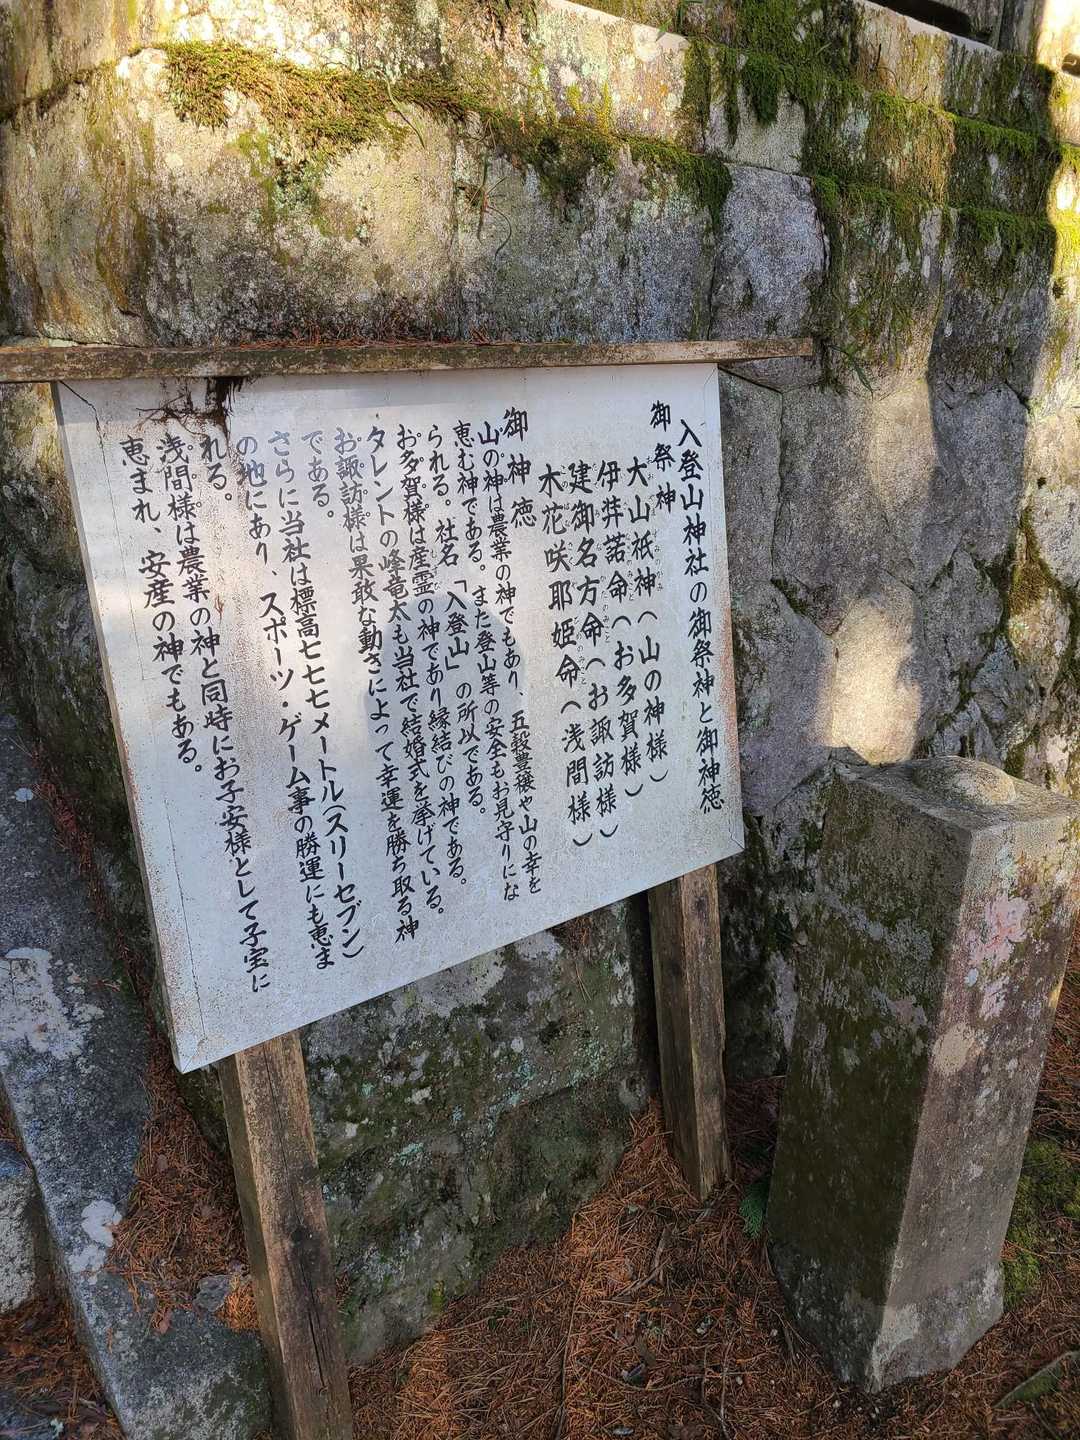 入登山神社の御祭神と御神徳
御祭神
大山祇神(山の神様)
伊弉諾命(お多賀様)
建御名方命(お諏訪様)
木花咲耶姫命(浅間様)
御神徳
山の神は農業の神でもあり、五穀豊穣や山の幸を
恵む神である。また登山等の安全もお見守りにな
られる。社名「入登山」の所以である。
お多賀様は産霊の神であり縁結びの神である。
タレントの峰竜太も当社で結婚式を挙げている。
お諏訪様は果敢な動きによって幸運を勝ち取る神
である。
さらに当社は標高七七七メートル(スリーセブン)
の地にあり、スポーツ・ゲーム事の勝運にも恵ま
れる。
浅間様は農業の神と同時にお子安様として子宝に
恵まれ、安産の神でもある。